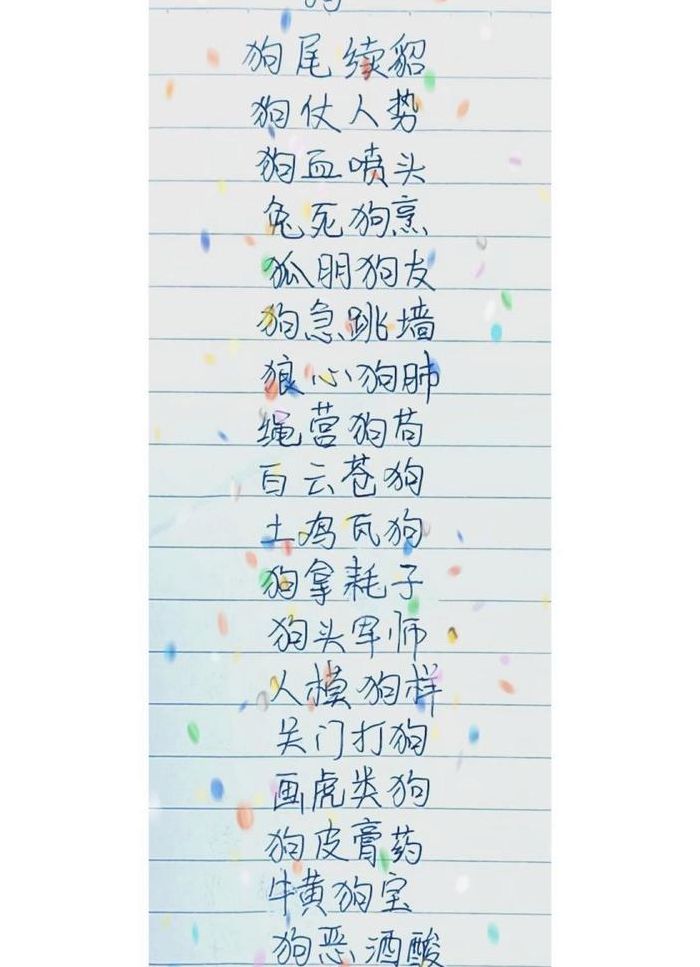 狗尾续貂
狗仗人势
狗血喷头
兔死狗烹
狐朋狗友
狗急跳墙
狼心狗肺
绳营狗苟
白云苍狗
土鸡瓦狗
狗拿耗子
狗头军师
人模狗样
关门打狗
画虎类狗
狗皮膏药
牛黄狗宝
狗恶酒酸